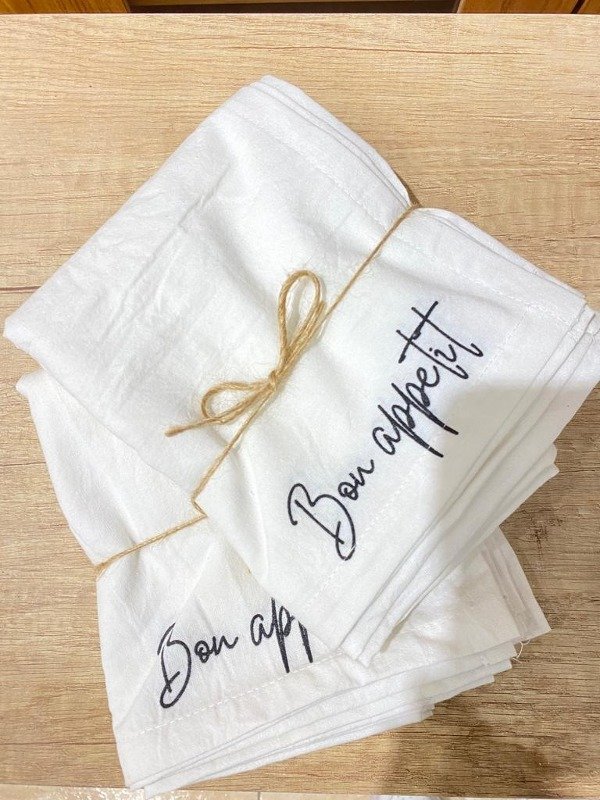 Bon appetit
Bon app